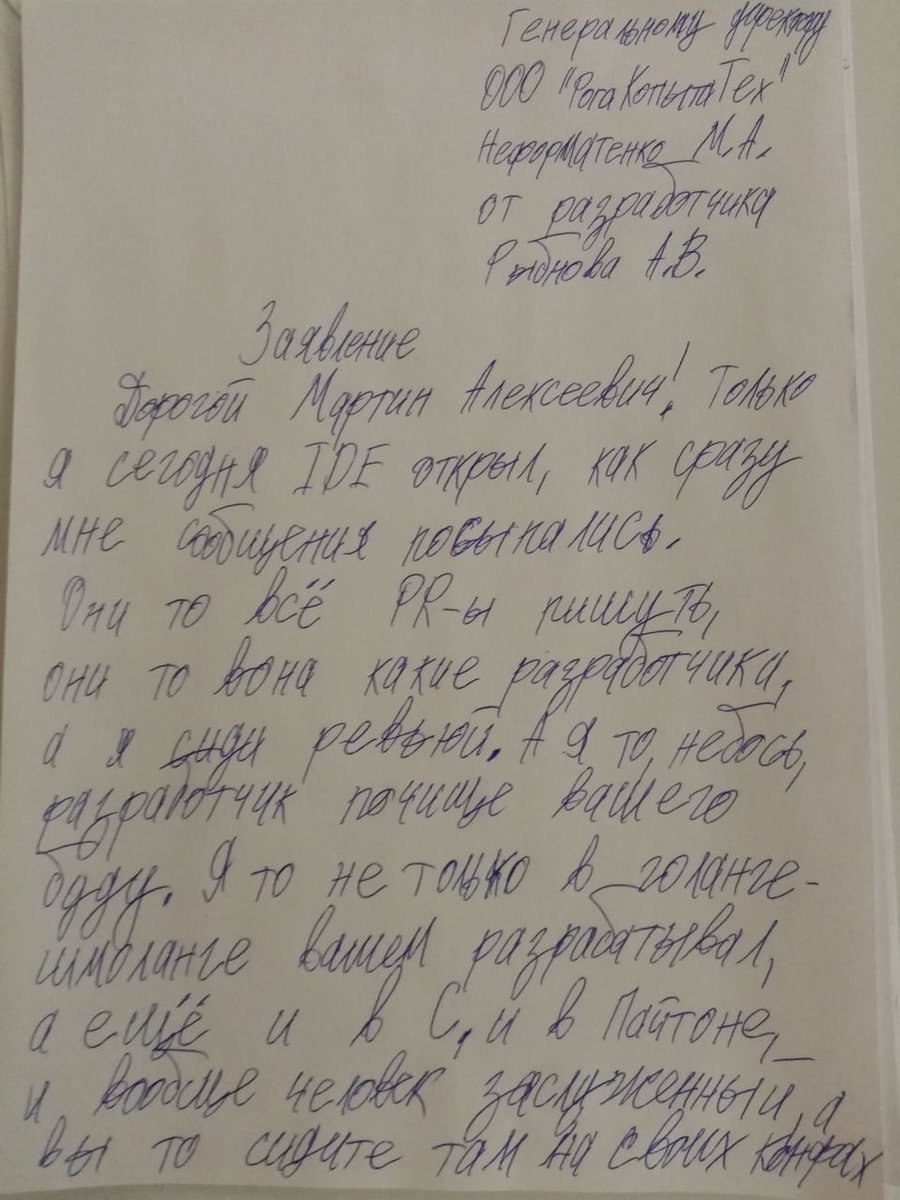 Генеральному директору
ООО "РогаКопытаТех"
Неформатенко М.А.
от разработчика
Рыбнова А.В.
Заявление
Дорогой Мартин Алексеевич! Только
я сегодня IDE открыл, как сразу
мне сообщения посыпались.
Они то всё PR-ы пишуть,
они то вона какие разработчики,
а я сиди ревьюй. А я то, небось,
разработчик почище вашего
буду. Я то не только в голанге-
шмоланге вашем разрабатывал,
а ещё и в С, и в Пайтоне,
и вообще человек заслуженный, а
вы то сидите там на своих конфах